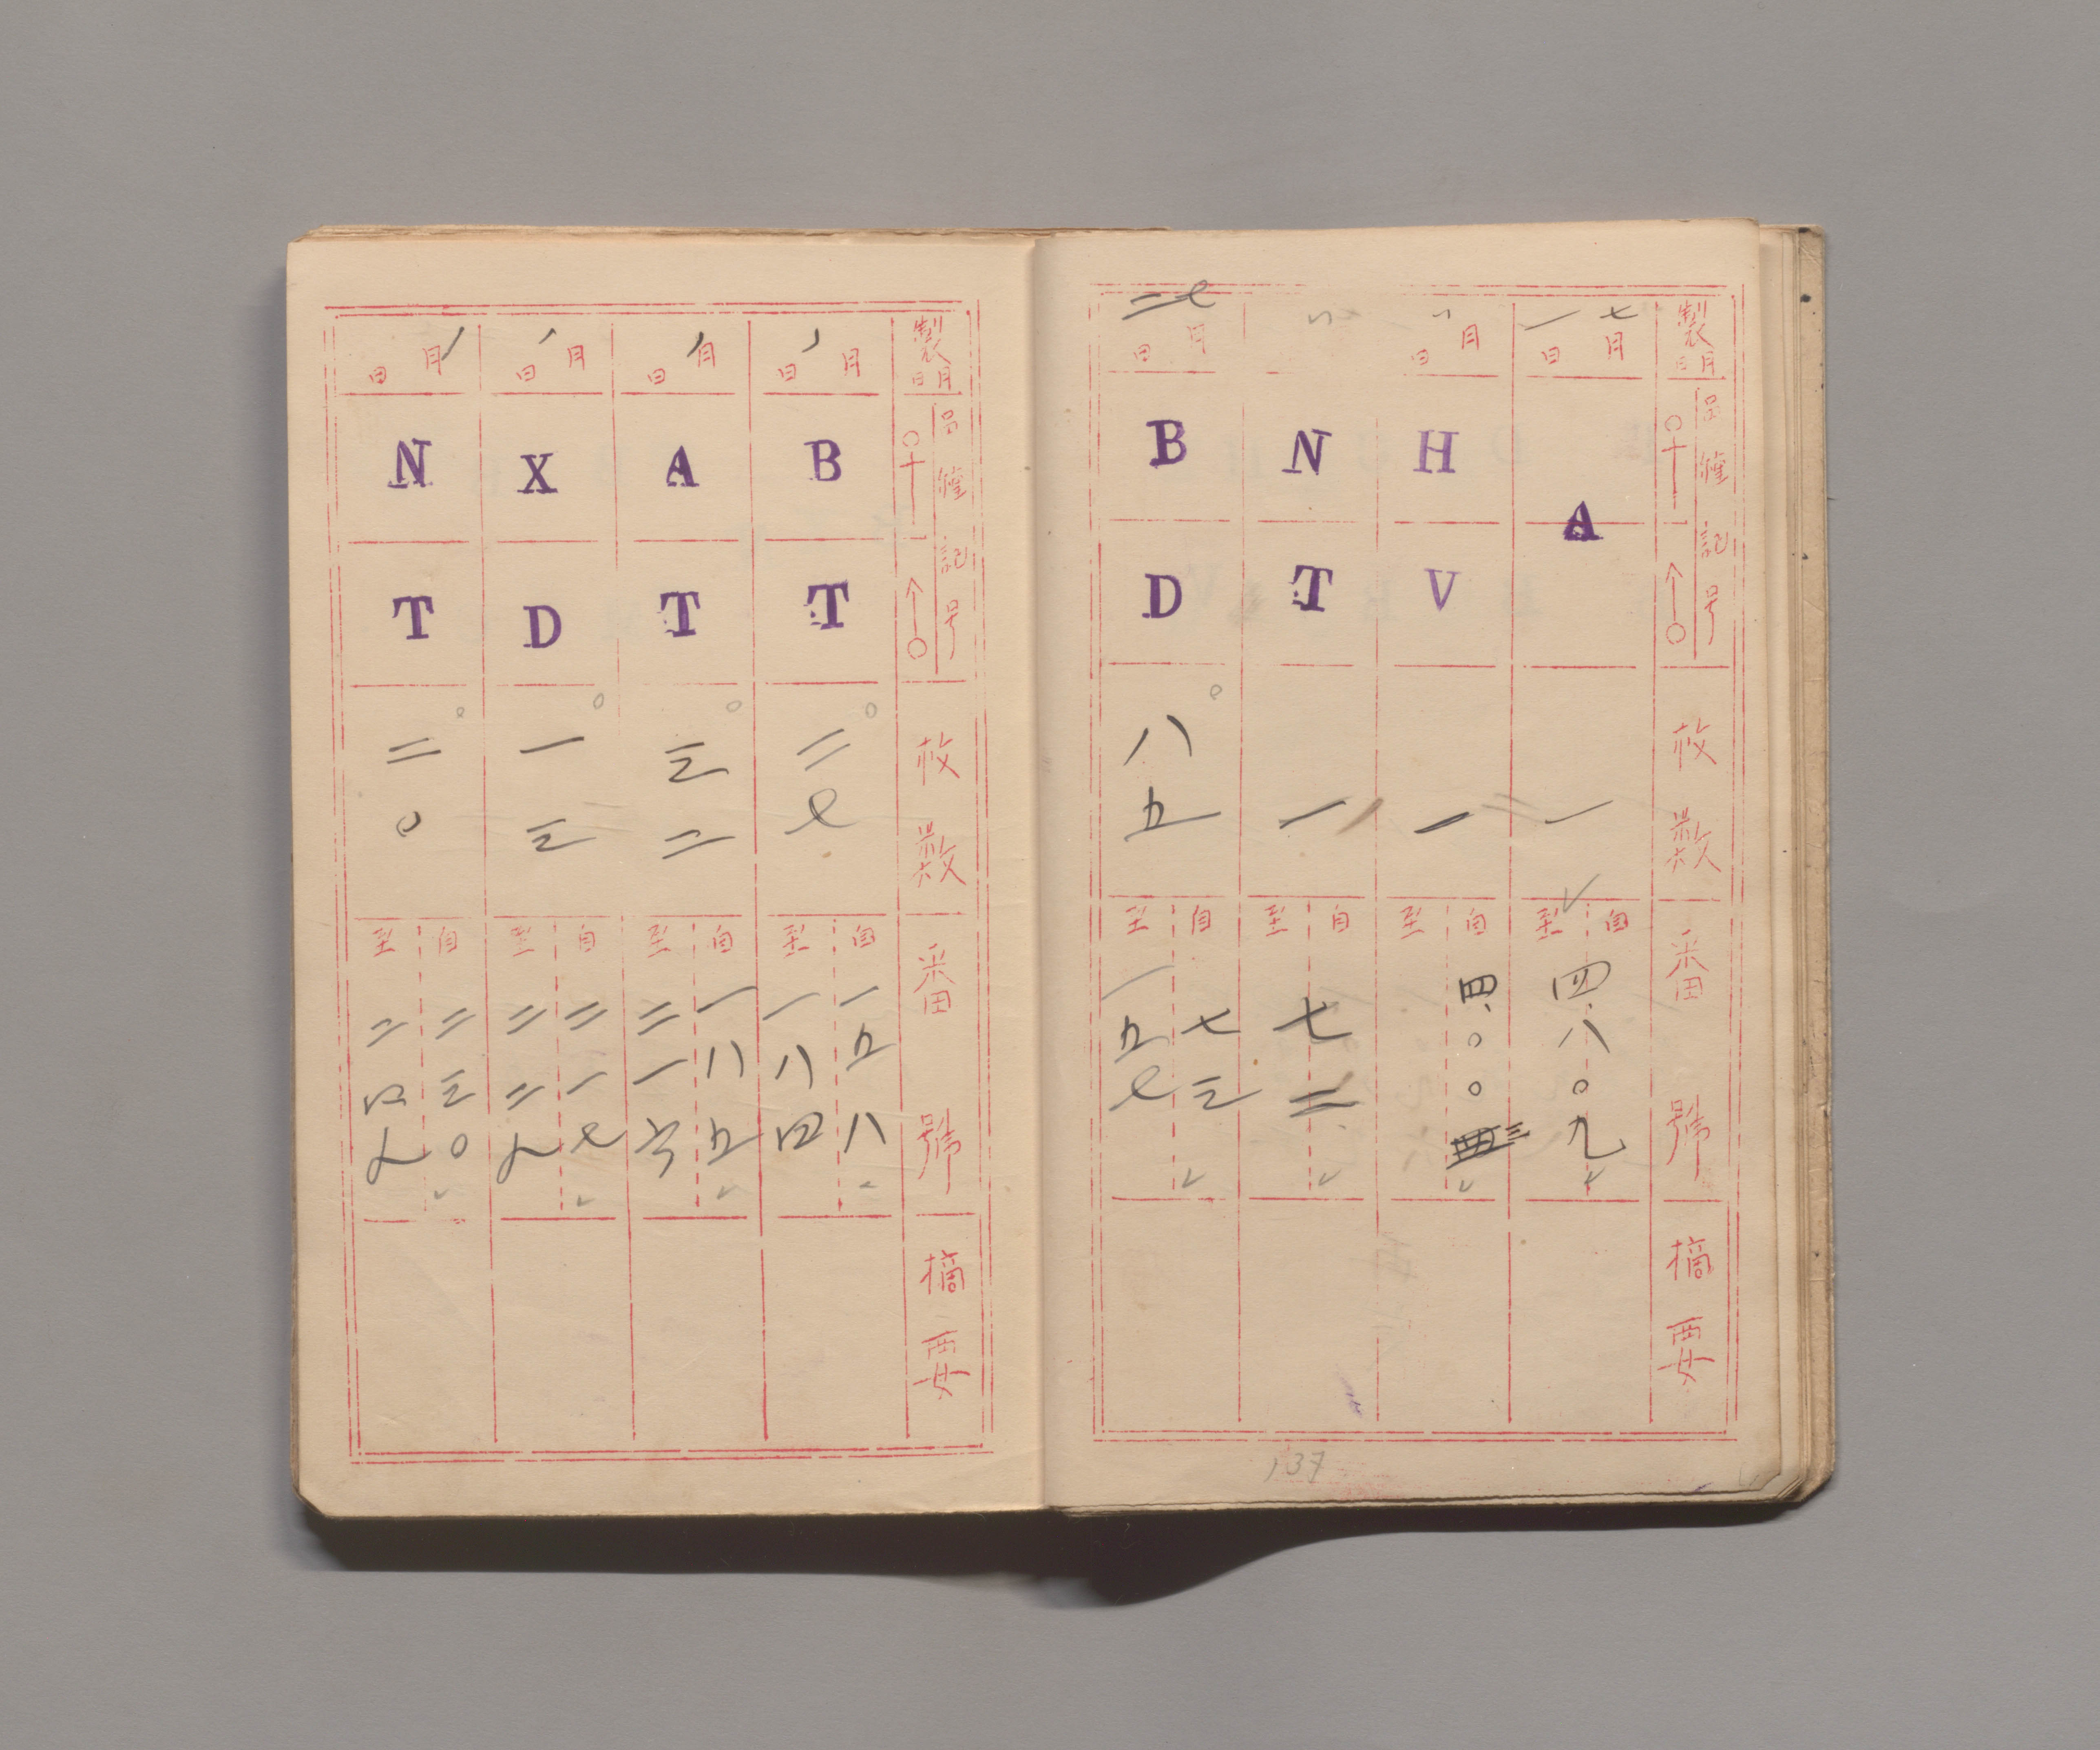 製月日
品種記号
♀
♂
枚数
番號
摘要
七月一日
A
一
自 至
四、八〇九
月日
H
V
一
自 至
四、〇〇三
N
T
一
自 至
七二
二七
月日
B
D
八五
自 七三
至 一五七
137
製月日
品種記号
♀
♂
枚数
番號
摘要
月日
B
T
二七
自 一五八
至 一八四
月日
A
T
三二
自 一八五
至 二一六
月日
X
D
一三
自 二一七
至 二二九
月日
N
T
二〇
自 二三〇
至 二四九